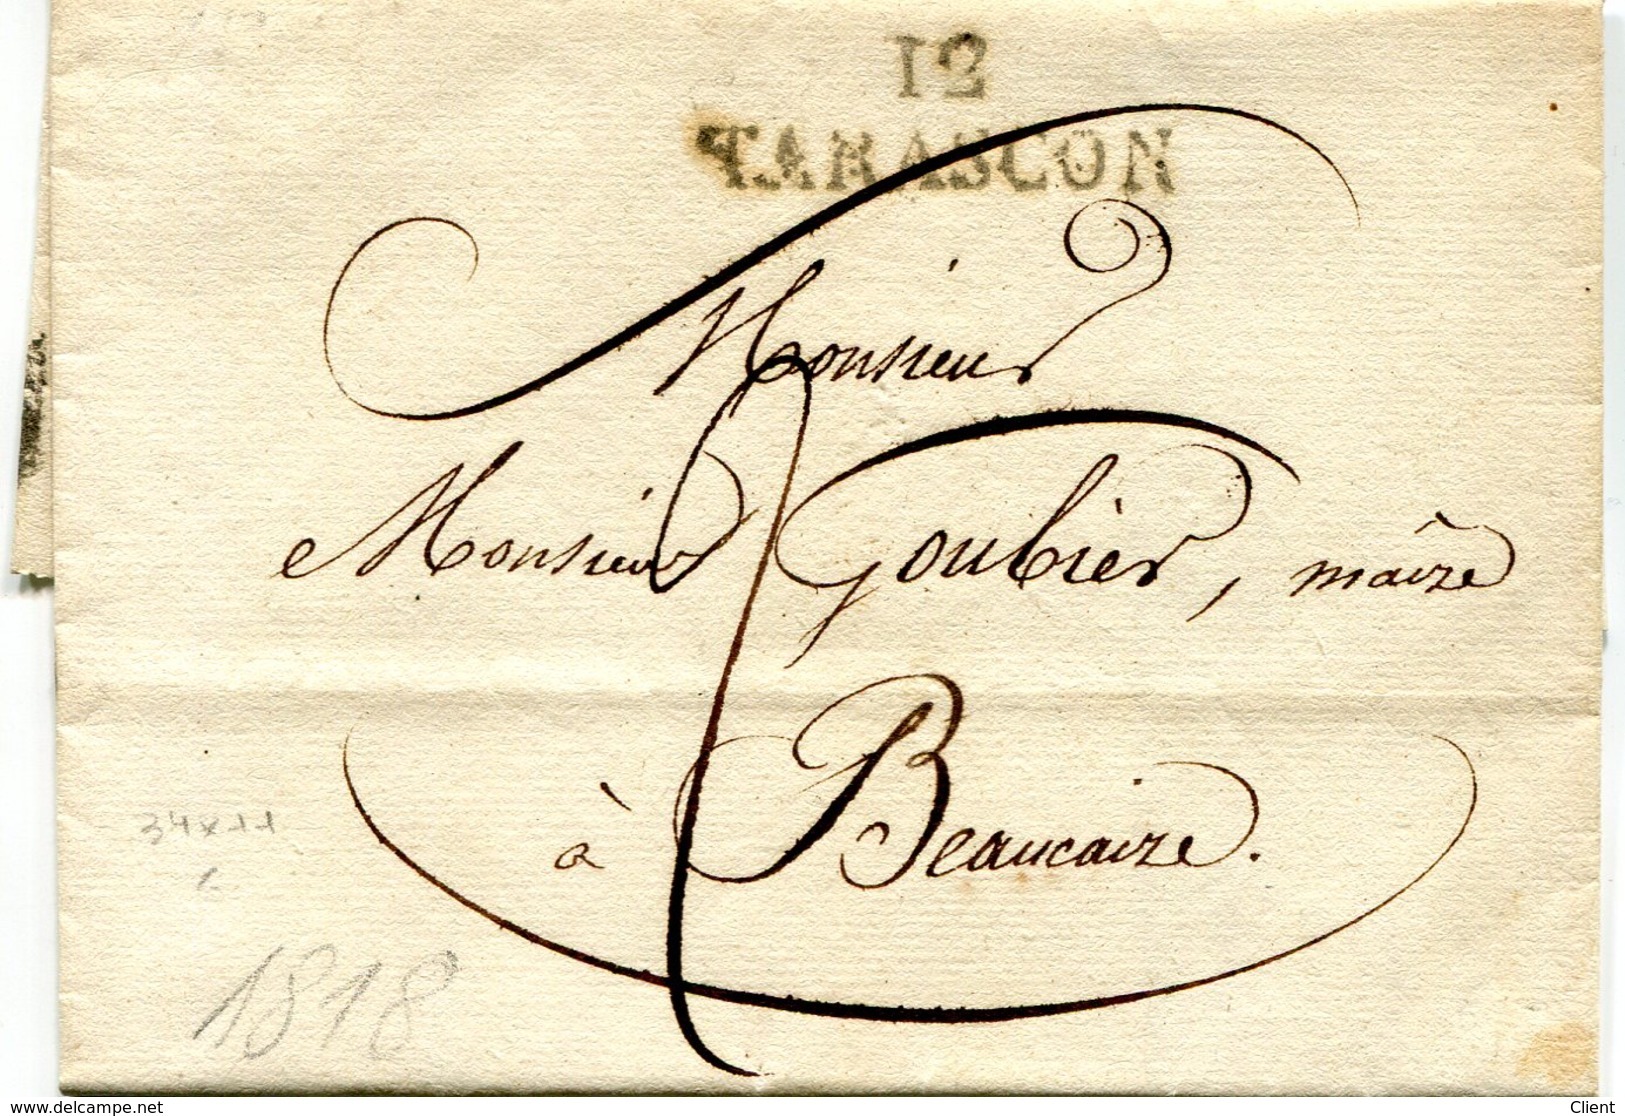 12
TARASCON
Monsieur
Monsieur Goubier, maire
à Beaucaire.
34x11
1818
www.delcampe.net
Client